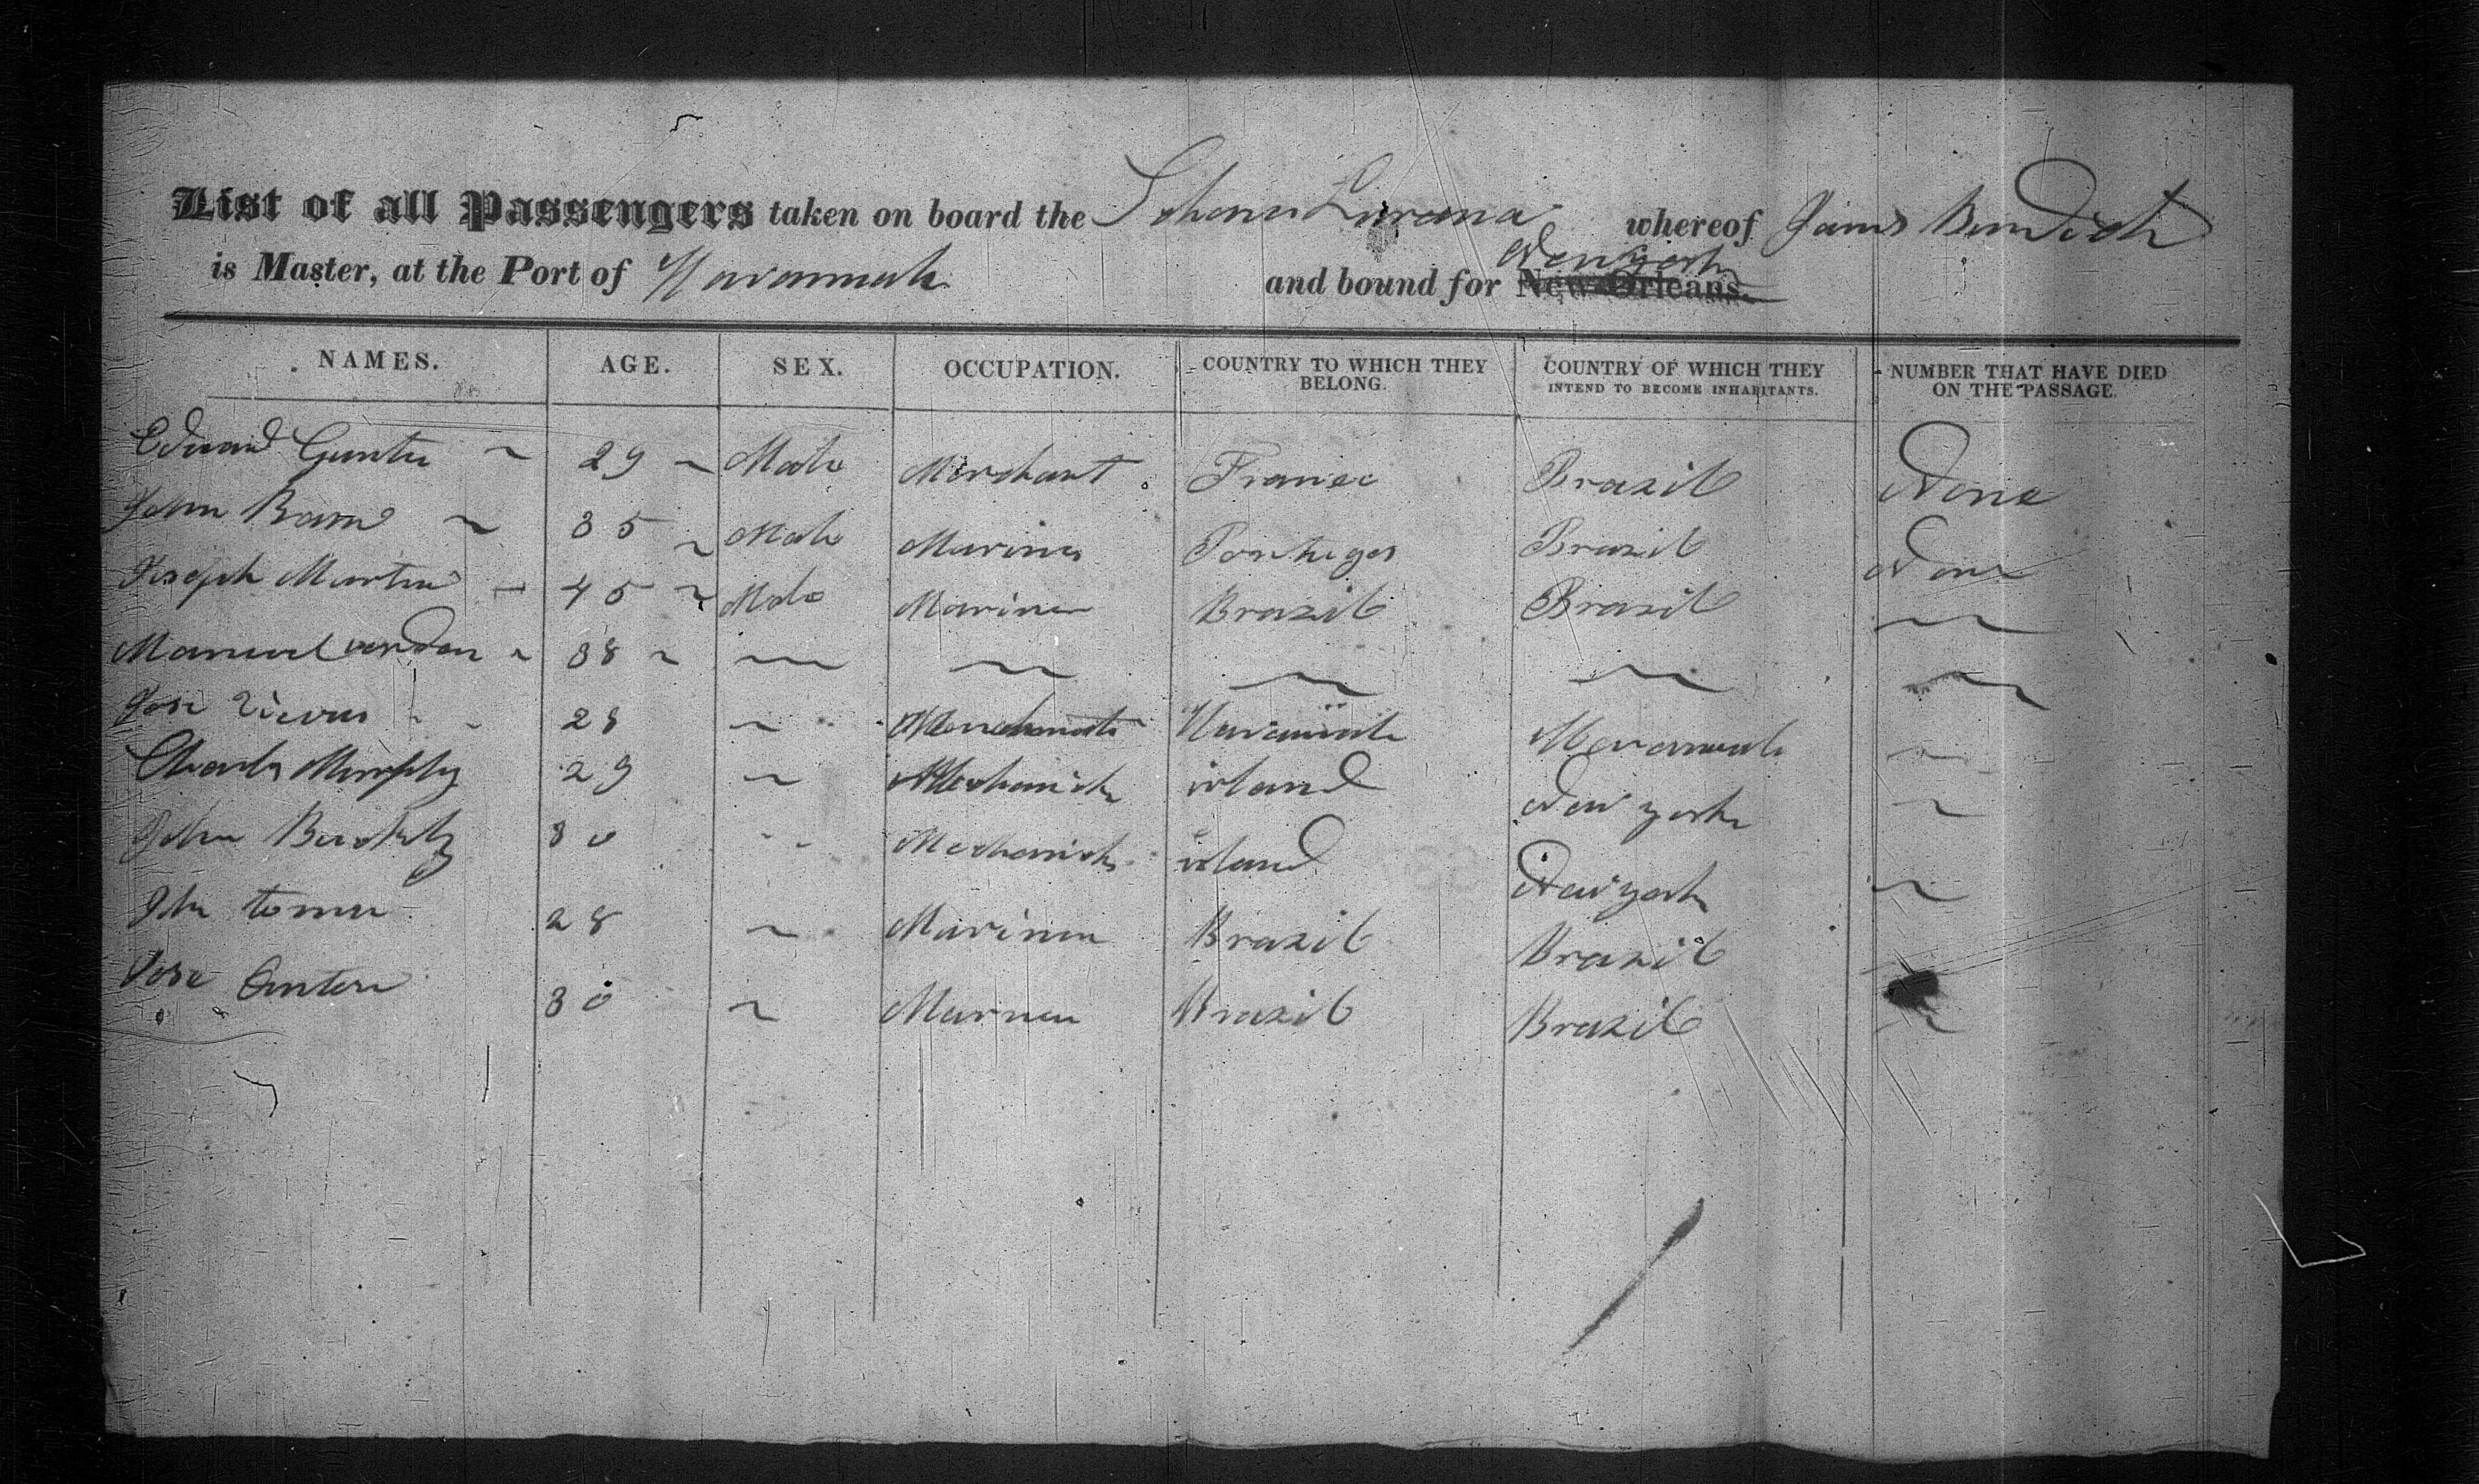 List of all Passengers taken on board the Schoner Lurana whereof James Burdich
is Master, at the Port of Havannah and bound for New york New Orleans.
NAMES. AGE. SEX. OCCUPATION. COUNTRY TO WHICH THEY BELONG. COUNTRY OF WHICH THEY INTEND TO BECOME INHABITANTS. NUMBER THAT HAVE DIED ON THE PASSAGE.
Edward Gunter 29 Male Merchant France Brazil None
John 35 Male Mariner Brazil None
Joseph Martin 45 Male Mariner Brazil Brazil
Manuel 38
Jose 28 Havannah Havannah
Charls Murphy 29 Mechanick irland New york
John 30 Mechanick irland New york
28 Mariner Brazil Brazil
Jose 30 Marner Brazil Brazil